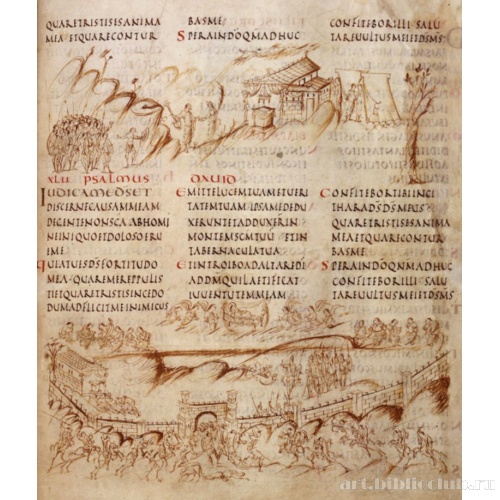 QUARETRISTISESANIMA
MEAETQUARECONTUR
BASME
SPERAINDOQMADHUC
CONFITEBORILLISALU
TAREUULTUSMEIETDSMS
XLII PSALMUS DAUID
IUDICAMEDSET
DISCERNECAUSAMMEAM
DEGENTENONSCAABHOMI
NEINIQUOETDOLOSOERU
IME
QUIATUESDSFORTITUDO
MEAQUAREMEREPPULIS
TIETQUARETRISTISINCEDO
DUMADFLICITMEINIMICUS
EMITTELUCEMTUAMETUERI
TATEMTUAMIPSAMEDEDU
XERUNTETADDUXERIN
MONTEMSCMTUU ETIN
TABERNACULATUA
ETINTROIBOADALTAREDI
ADDMQUILAETIFICAT
IUUENTUTEMMEAM
CONFITEBORTIBIINCI
THARADSDSMEUS
QUARETRISTISESANIMA
MEAETQUARECONTUR
BASME
SPERAINDOQNMADHUC
CONFITEBORILLISALU
TAREUULTUSMEIETDSMS
art.biblioclub.ru